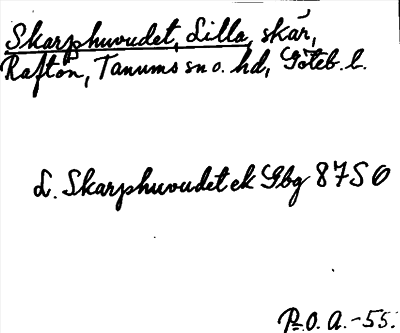 Skarphuvudet, Lilla, skär,
Raftön, Tanums sn o. hd, Göteb. l.
L. Skarphuvudet ek Gbg 87SO
P.O.A. -55.